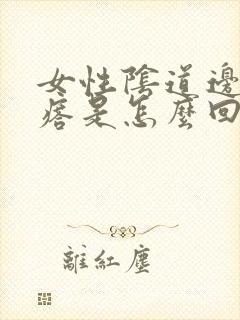 女性陰道邊
痞是怎麼回
離紅塵